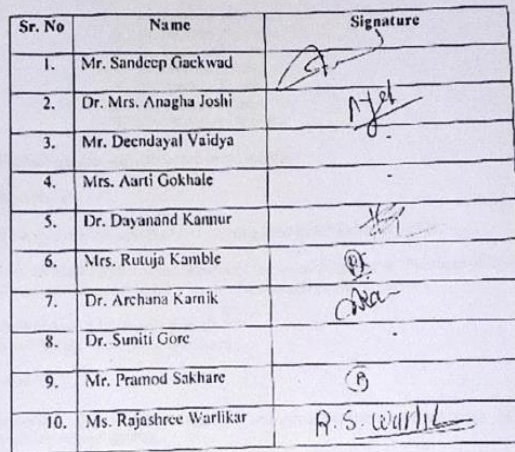 Sr. No Name Signature
1. Mr. Sandeep Gaekwad
2. Dr. Mrs. Anagha Joshi
3. Mr. Deendayal Vaidya -
4. Mrs. Aarti Gokhale -
5. Dr. Dayanand Kannur
6. Mrs. Rutuja Kamble
7. Dr. Archana Karnik
8. Dr. Suniti Gore -
9. Mr. Pramod Sakhare
10. Ms. Rajashree Warlikar R. S. Warlik